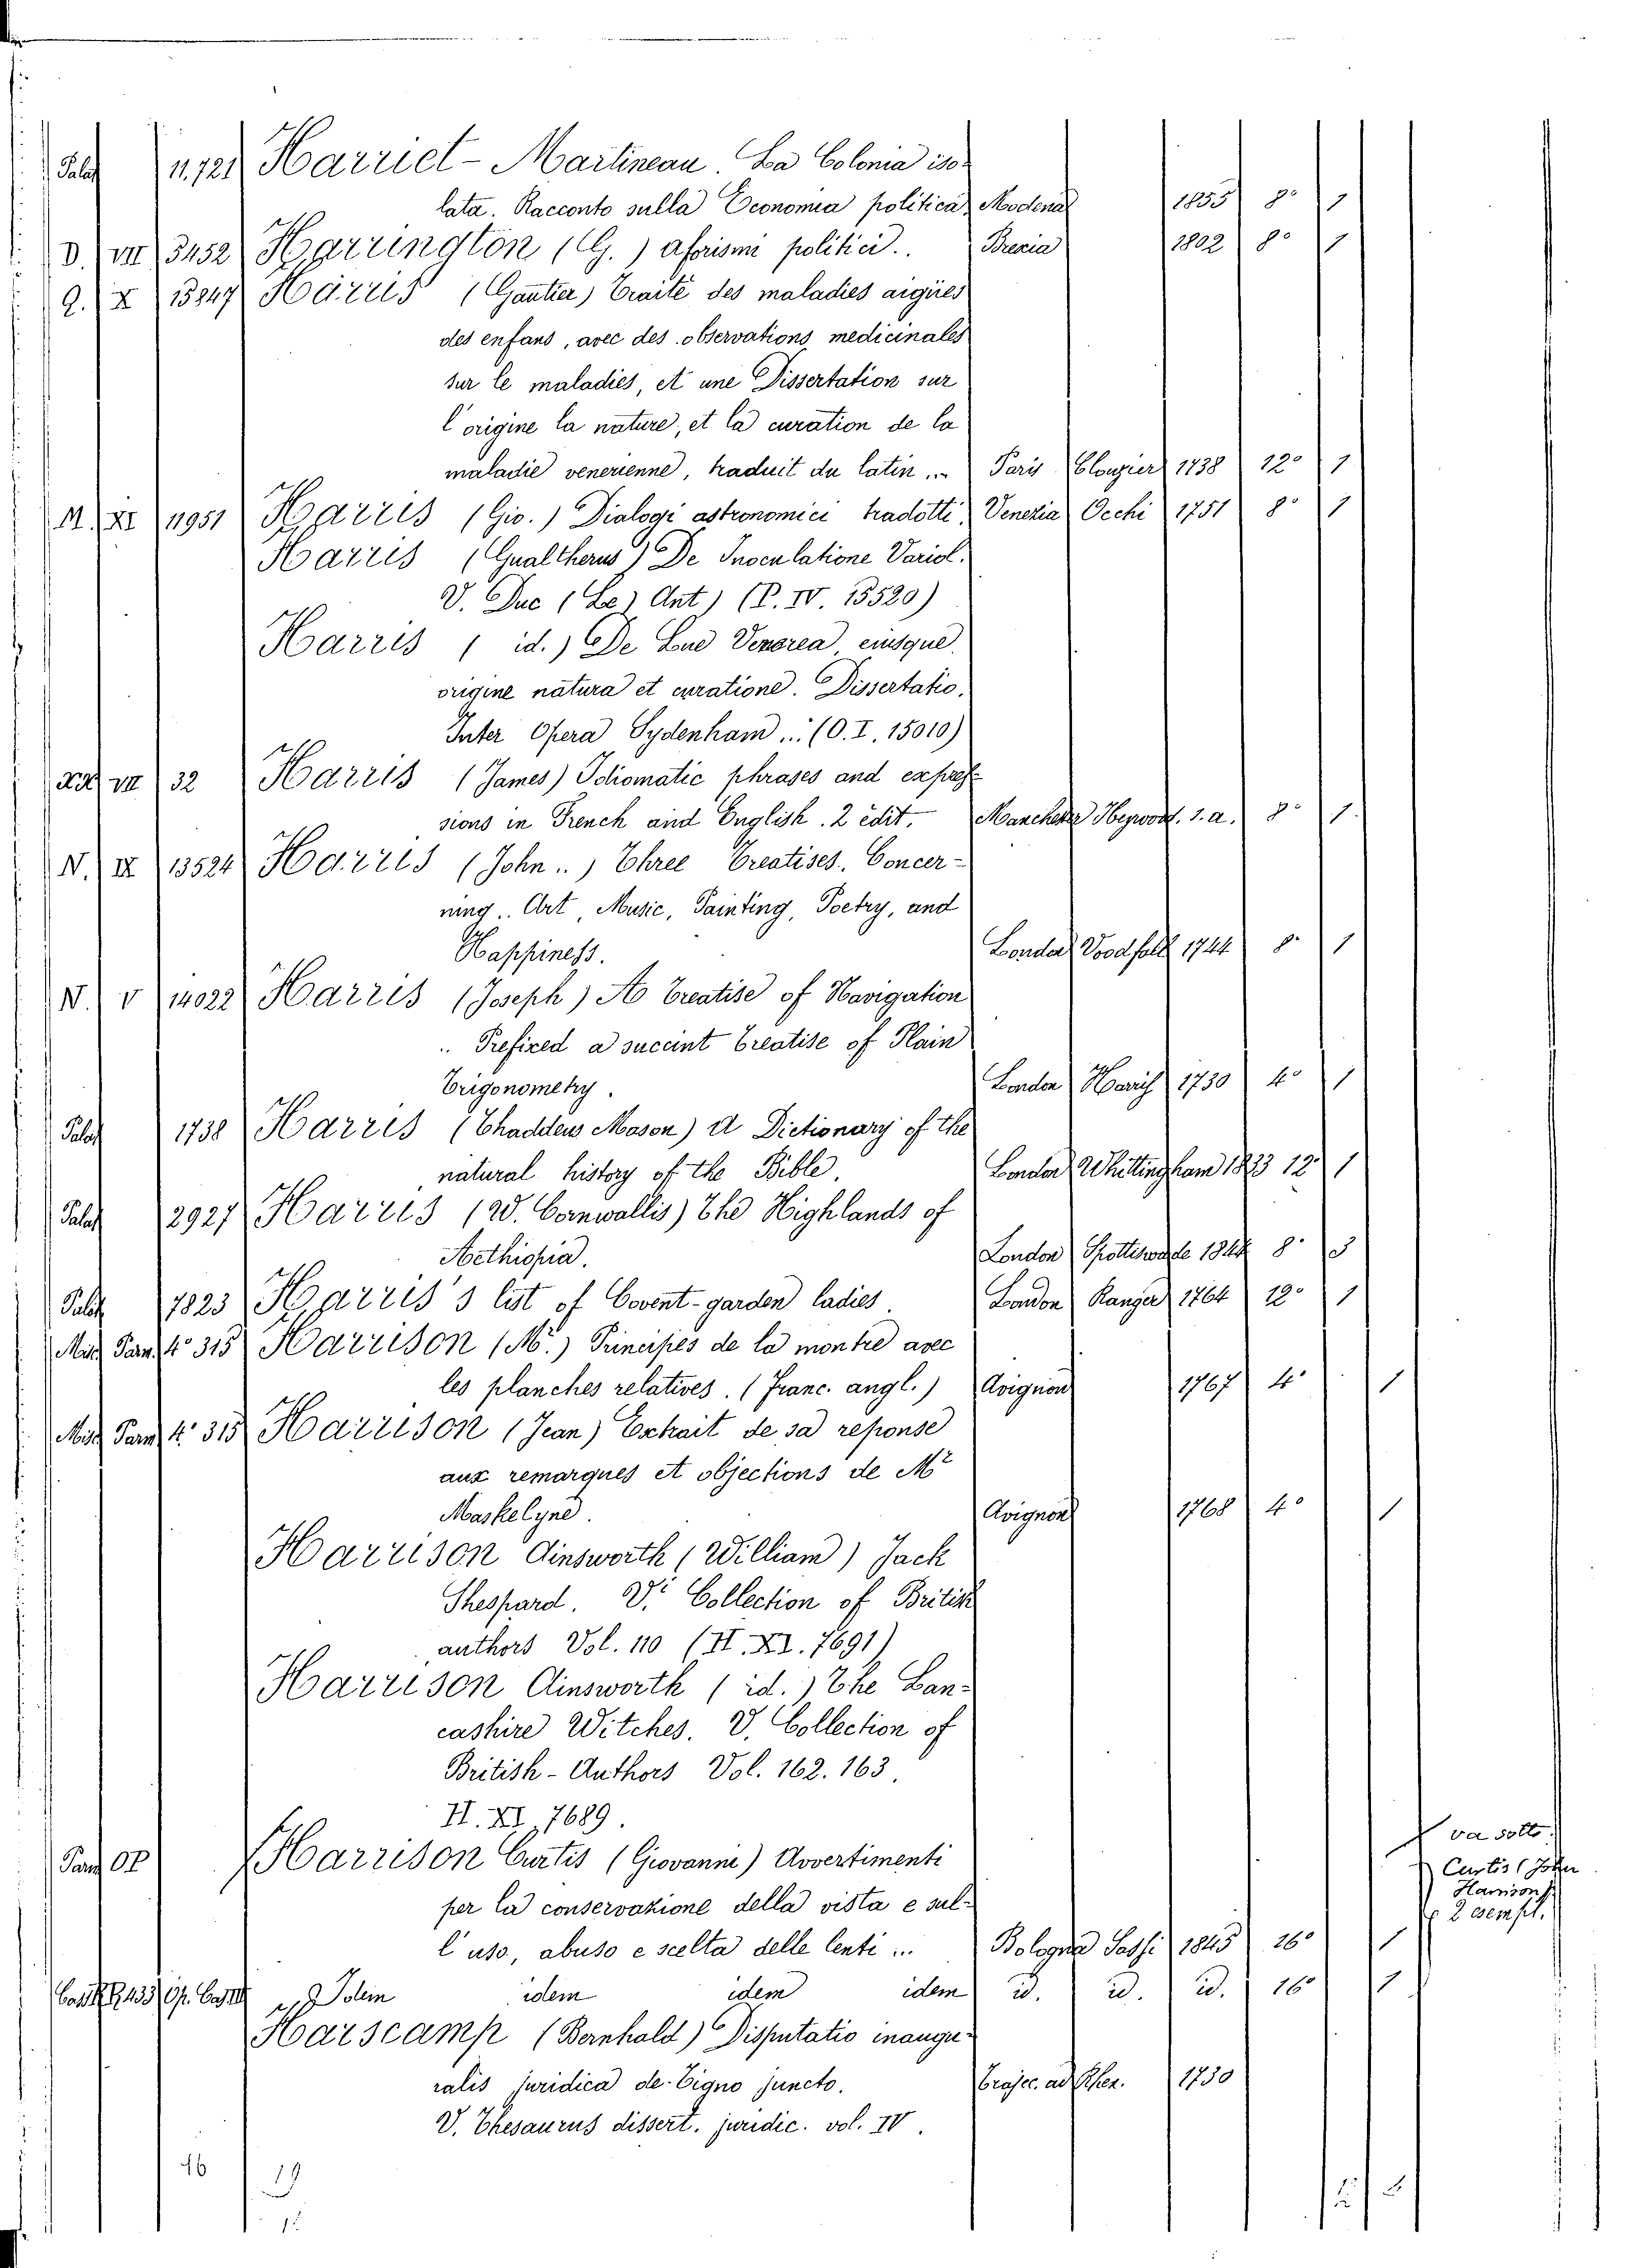 Palat 11.721 Harriet-Martineau. La Colonia iso-
lata. Racconto sulla Economia politica Modena 1855 8° 1
D. VII 3452 Harrington (G.) aforismi politici.. Brescia 1802 8° 1
Q. X 15847 Harris (Gautier) Traité des maladies aigües
des enfans, avec des observations medicinales
sur le maladies, et une Dissertation sur
l'origine la nature, et la curation de la
maladie venerienne, traduit du latin... Paris Clouzier 1738 12° 1
M. XI 11951 Harris (Gio.) Dialogi astronomici tradotti Venezia Occhi 1751 8° 1
Harris (Gualtherus) De Inoculatione Variol.
V. Duc (Le) Ant) (P. IV. 15520)
Harris (id.) De Lue Venerea, eiusque
origine natura et curatione. Dissertatio.
Inter Opera Sydenham... (O. I. 15010)
VII 32 Harris (James) Idiomatic phrases and expres-
sions in French and English. 2 edit. Manchester Heywood. s.a. 8° 1.
N. IX 13524 Harris (John..) Three Treatises. Concer-
ning.. Art, Music, Painting, Poetry, and
Happiness. London Voodfall 1744 8° 1
N. V 14022 Harris (Joseph) A Treatise of Navigation
.. Prefixed a succint treatise of Plain
Trigonometry. London Harris 1730 4° 1
Palat 1738 Harris (Thaddeus Mason) A Dictionary of the
natural history of the Bible. London Whittingham 1833 12° 1
Palat 2927 Harris (W. Cornwallis) The Highlands of
Aethiopia. London Spottiswoode 1844 8° 3
Palat 7823 Harris's list of Covent-garden ladies. London Ranger 1764 12° 1
Misc Parm. 4° 315 Harrison (Mr.) Principes de la montre avec
les planches relatives. (Franc. angl.) Avignon 1767 4° 1
Misc Parm. 4° 315 Harrison (Jean) Extrait de sa reponse
aux remarques et objections de Mr
Maskelyne. Avignon 1768 4° 1
Harrison Ainsworth (William) Jack
Sheppard. V. Collection of British
authors Vol. 110 (H. XI. 7691)
Harrison Ainsworth (id.) The Lan-
cashire Witches. V. Collection of
British-Authors Vol. 162. 163.
H. XI, 7689.
va sotto
Parm OP Harrison Curtis (Giovanni) Avvertimenti
Curtis (John
Harrison)
per la conservazione della vista e sul-
2 esempl.
l'uso, abuso e scelta delle lenti... Bologna Sassi 1845 16° 1
433 Op. Idem idem idem idem id. id. id. 16° 1
Harscamp (Bernhold) Disputatio inaugu-
ralis juridica de Tigno juncto. Traject. ad Rhen. 1730
V. Thesaurus dissert. juridic. vol. IV.
16 19
15